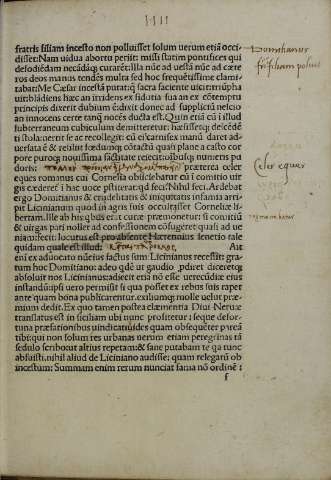 IIII
fratris filiam incesto non polluisset solum uerum etiã occi
disset: Nam uidua abortu periit: missi statim pontifices qui
defodiẽdam necãdãq; curarẽt: Illa nũc ad uestã nũc ad cæte
ros deos manus tendẽs multa sed hoc frequẽtissime clami
tabat: Me Cæsar incestã putat: q̃ sacra faciente uicit:
hæc an irridens ex fidutia sui an ex cõtemptu
principis dixerit dubium ẽ: dixit donec ad suppliciũ nescio
an innocens certe tanq̃ nocẽs ducta est. Quin etiã cũ ĩ illud
subterraneum cubiculum demitteretur: hæsissetq; descẽdẽ
ti stola: uertit se ac recollegit: cũ ei carnifex manũ daret ad
uersata ẽ & reiecit fœdumq; cõtactũ quasi plane a casto cor
pore puroq; nouissima sãctitate reiecit: oĩbusq; numeris pu
doris: præterea celer
eques romanus cui Cornelia obiiciebatur cũ ĩ comitio uir
gis cæderet̃ ĩ hac uoce pstiterat: qd feci? Nihil feci. Ardebat
ergo Domitianus & crudelitatis & iniquitatis infamia arri
pit Licinianum quod in agris suis occultasset Corneliæ li
bertam. Ille ab his qbus erat curæ præmonetur: si comitiũ
& uirgas pati nollet ad confessionem cõfugeret quasi ad ue
niam: fecit: locutus est pro absente Hærennius senetio tale
quidam quale est illud: Ait
eni ex aduocato nũcius factus sum: Licinianus recessit: gra
tum hoc Domitiano: adeo qdẽ ut gaudio pderet̃ diceretq;
absoluit nos Licinianus: adiecit etiã nõ esse uerecũdiæ eius
instandũ: ipsi uero permisit si qua posset ex rebus suis rape
ret ante quam bona publicarentur. exiliumq; molle uelut præ
mium dedit. Ex quo tamen postea clementia Diui Neruæ
translatus est in siciliam ubi nunc profitetur: seque defor
tuna præfationibus uindicat: uides quam obsequẽter pareã
tibi: qui non solum res urbanas uerum etiam peregrinas tã
sedulo scribo: ut altius repetam: & sane putabam te qa tunc
abfuisti. nihil aliud de Liciniano audisse: quam relegatũ ob
incestum: Summam enim rerum nunciat fama nõ ordinẽ:
f
Domitianus
Celer eques